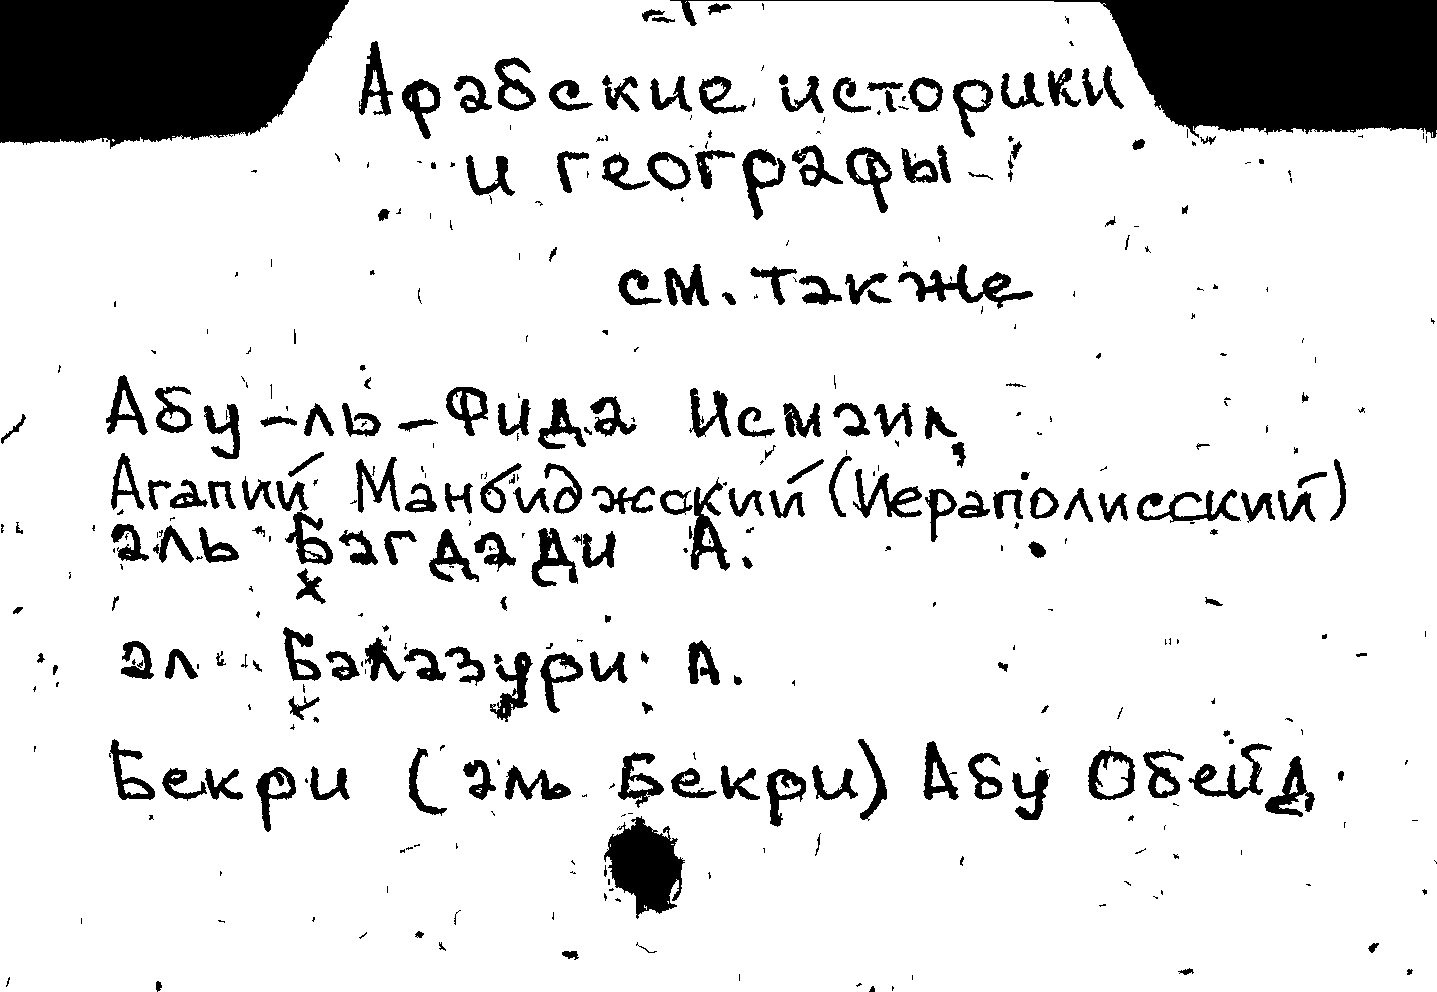 -1-
Арабские историки
и географы
см. также
Абу-ль-Фида Исмаил
Агапий Манбиджский (Иераполисский)
аль Багдади А.
ал Балазури А.
Бекри (аль Бекри) Абу Обейд